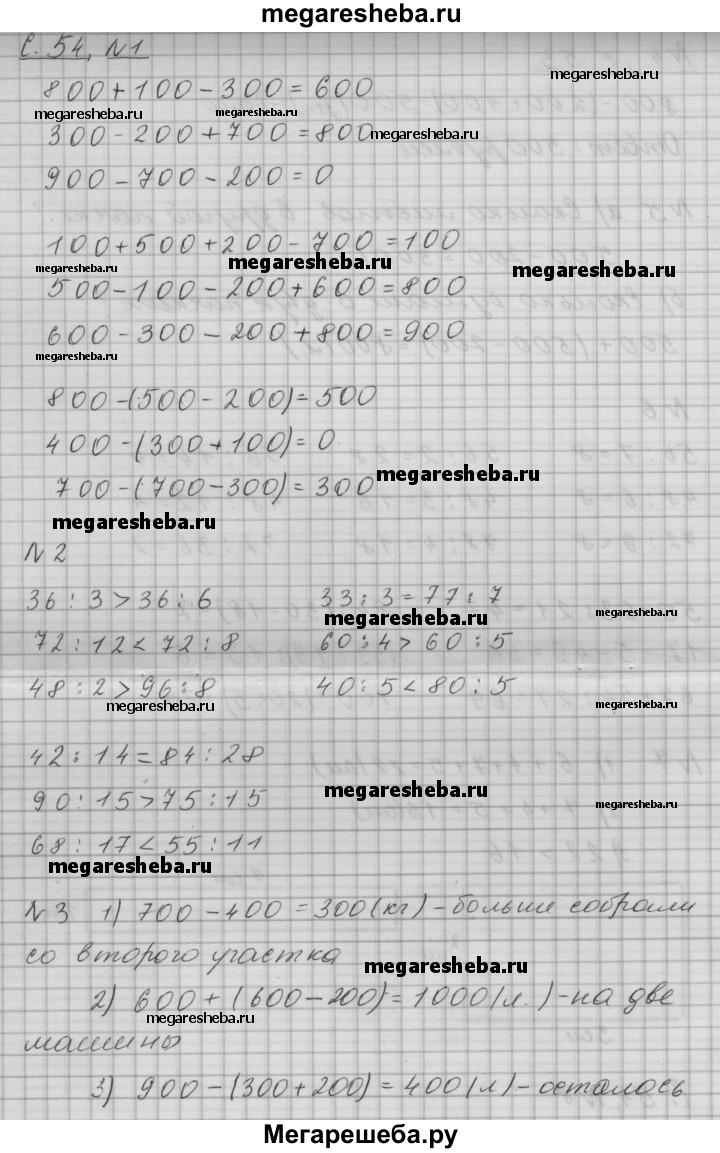 megaresheba.ru
С. 54, №1
800+100-300=600
megaresheba.ru
megaresheba.ru
megaresheba.ru
300-200+700=800
megaresheba.ru
900-700-200=0
100+500+200-700=100
megaresheba.ru
megaresheba.ru
megaresheba.ru
500-100-200+600=800
600-300-200+800=900
megaresheba.ru
800-(500-200)=500
400-(300+100)=0
megaresheba.ru
700-(700-300)=300
megaresheba.ru
№2
36:3>36:6 33:3=77:7
megaresheba.ru
megaresheba.ru
72:12<72:8 60:4>60:5
48:2>96:8 40:5<80:5
megaresheba.ru
megaresheba.ru
42:14=84:28
megaresheba.ru
90:15>75:15
megaresheba.ru
68:17<55:11
megaresheba.ru
№3 1) 700-400=300(кг)-больше собрали
со второго участка
megaresheba.ru
2) 600+(600-200)=1000(л.)-на две
megaresheba.ru
машины
3) 900-(300+200)=400(л)-осталось
Мегарешеба.ру